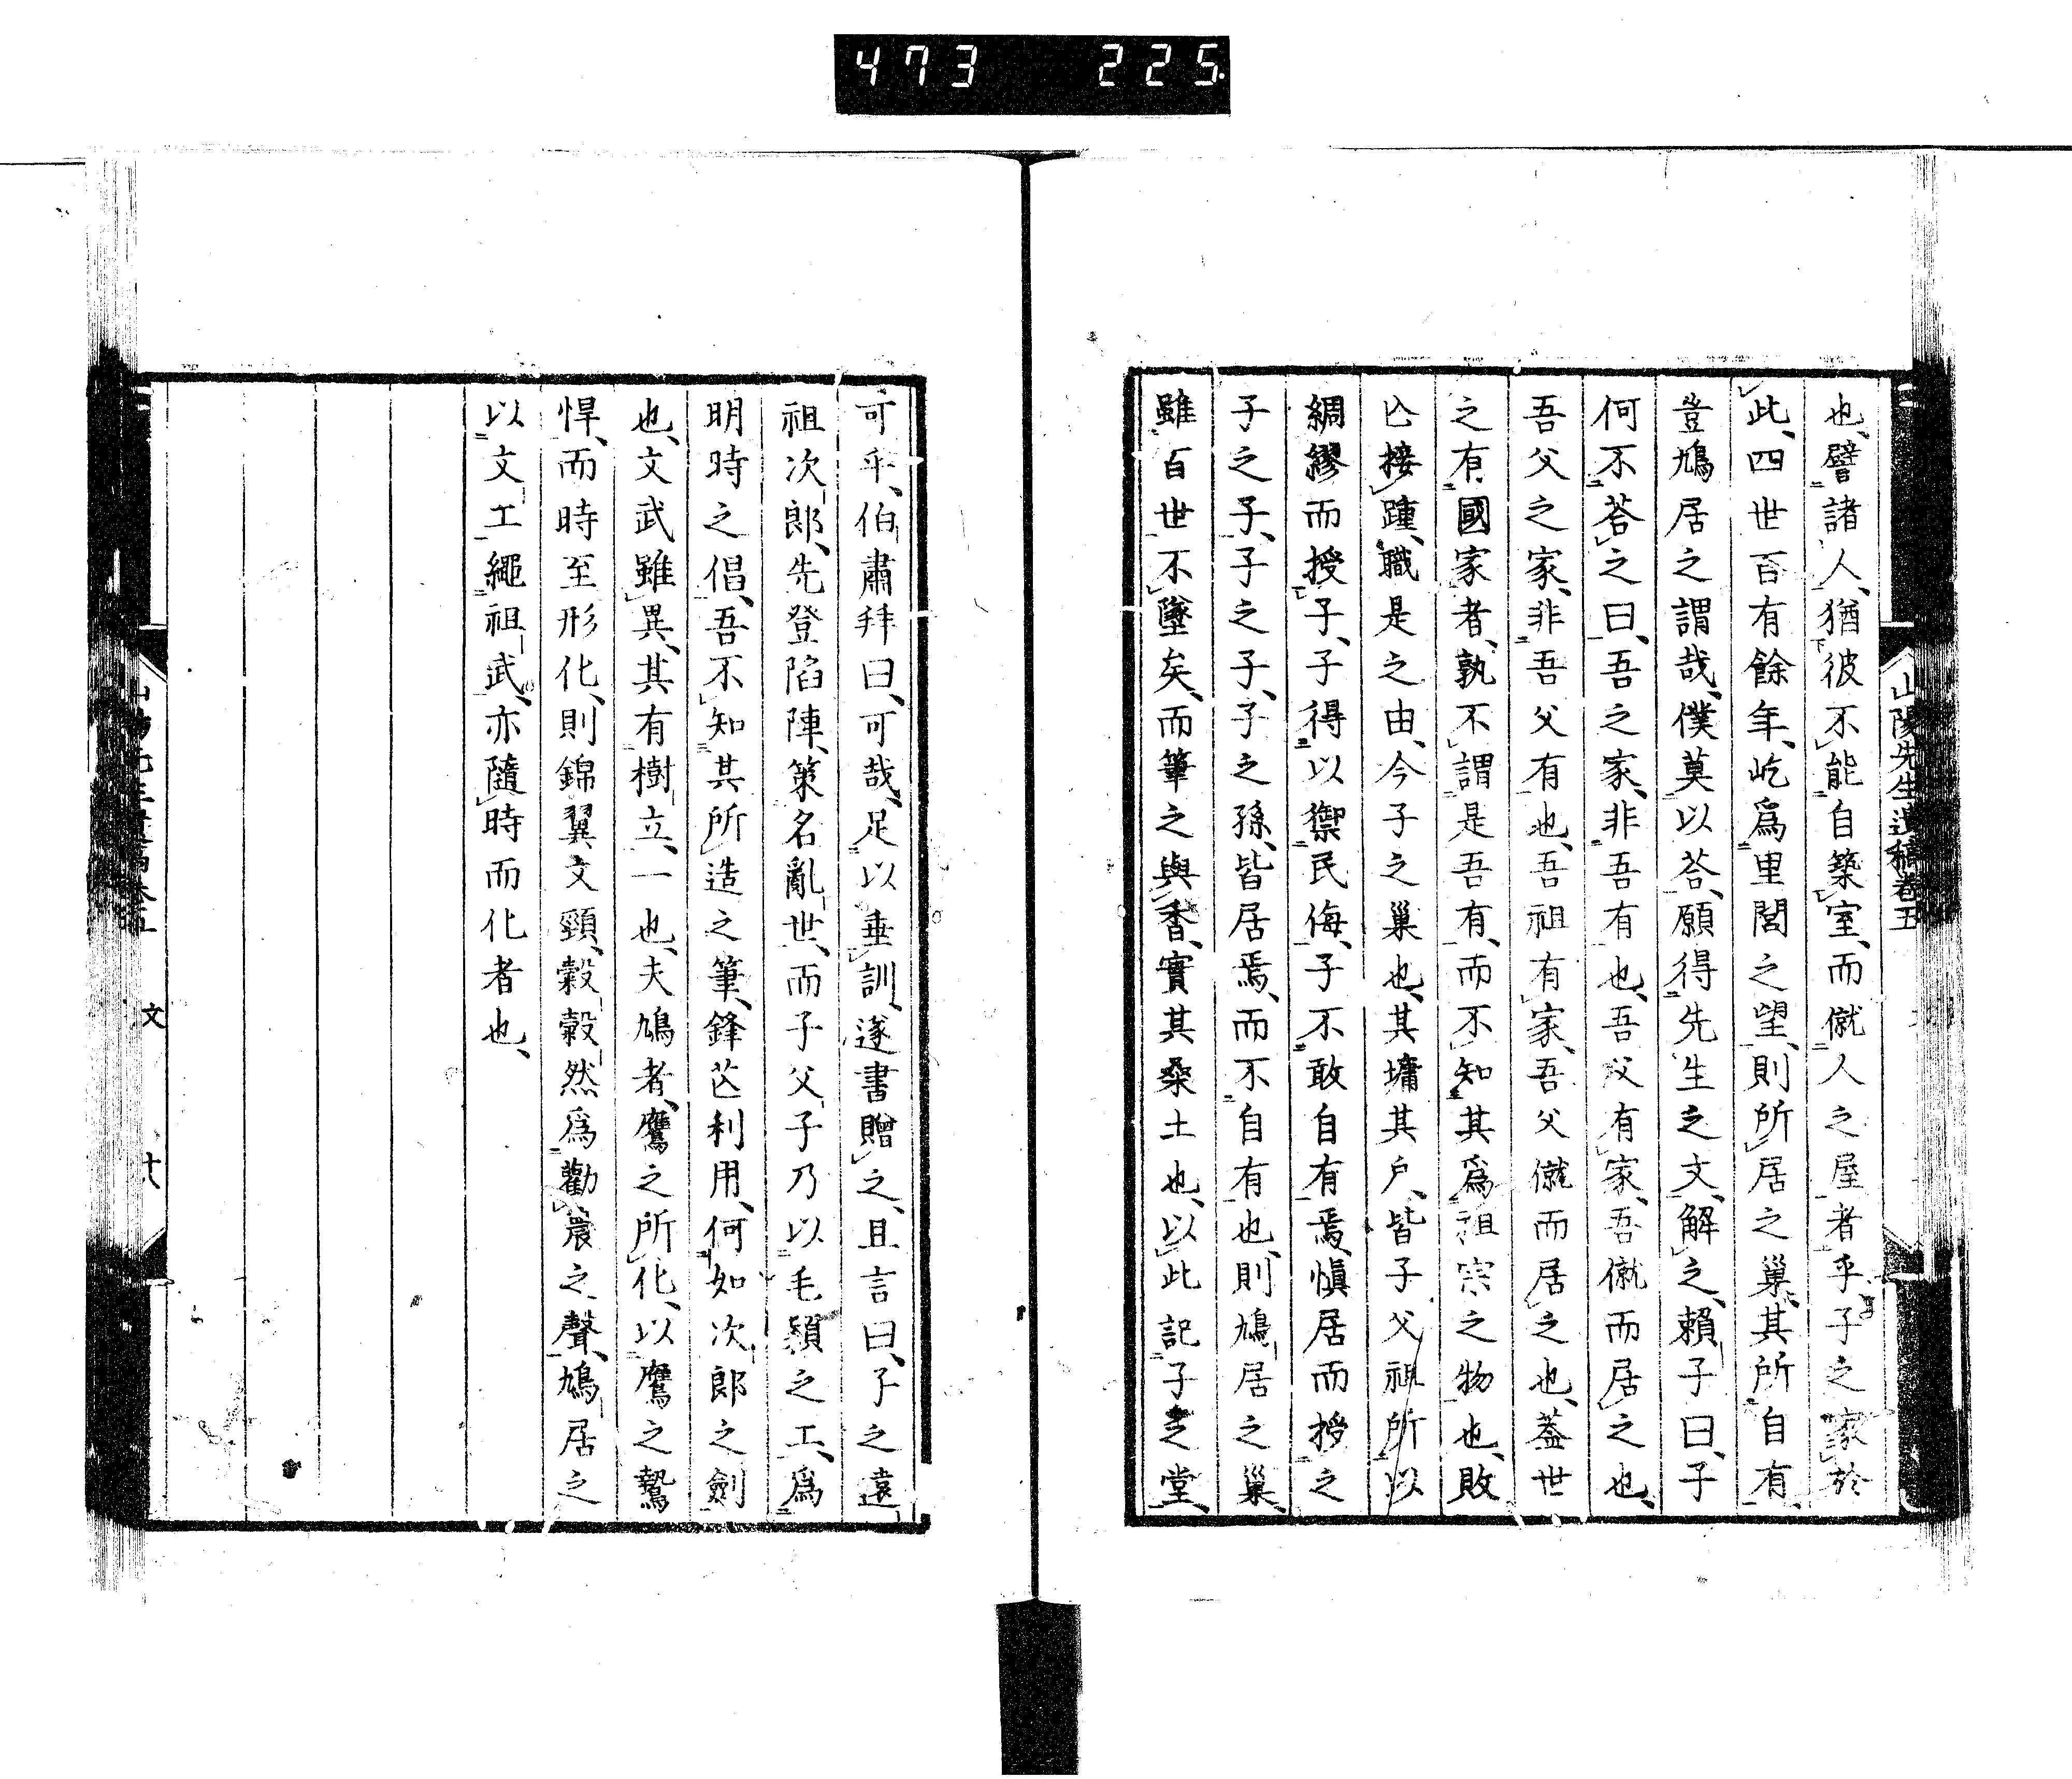 473 225
山陽先生遺稿卷五
也、譬諸人、猶彼不能自築室、而僦人之屋者乎、子之家於
此、四世百有餘年、屹爲里閭之望、則所居之巢、其所自有、
豈鳩居之謂哉、僕莫以荅、願得先生之文、解之、賴子曰、子
何不荅之曰、吾之家、非吾有也、吾父有家、吾僦而居之也、
吾父之家、非吾父有也、吾祖有家、吾父僦而居之也、蓋世
之有國家者、孰不謂是吾有、而不知其爲祖宗之物也、敗
亾接踵、職是之由、今子之巢也、其墉其戶、皆子父祖所以
綢繆而授子、子得以禦民侮、子不敢自有焉、愼居而授之
子之子、子之子、子之孫、皆居焉、而不自有也、則鳩居之巢、
雖百世不墜矣、而筆之與香、實其桑土也、以此記子之堂、
可乎、伯肅拜曰、可哉、足以垂訓、遂書贈之、且言曰、子之遠
祖次郎、先登陷陣、策名亂世、而子父子乃以毛穎之工、爲
明時之倡、吾不知其所造之筆、鋒芒利用、何如次郎之劍
也、文武雖異、其有樹立、一也、夫鳩者、鷹之所化、以鷹之鷙
悍、而時至形化、則錦翼文頸、穀穀然爲勸農之聲、鳩居之
以文工繩祖武、亦隨時而化者也、
文